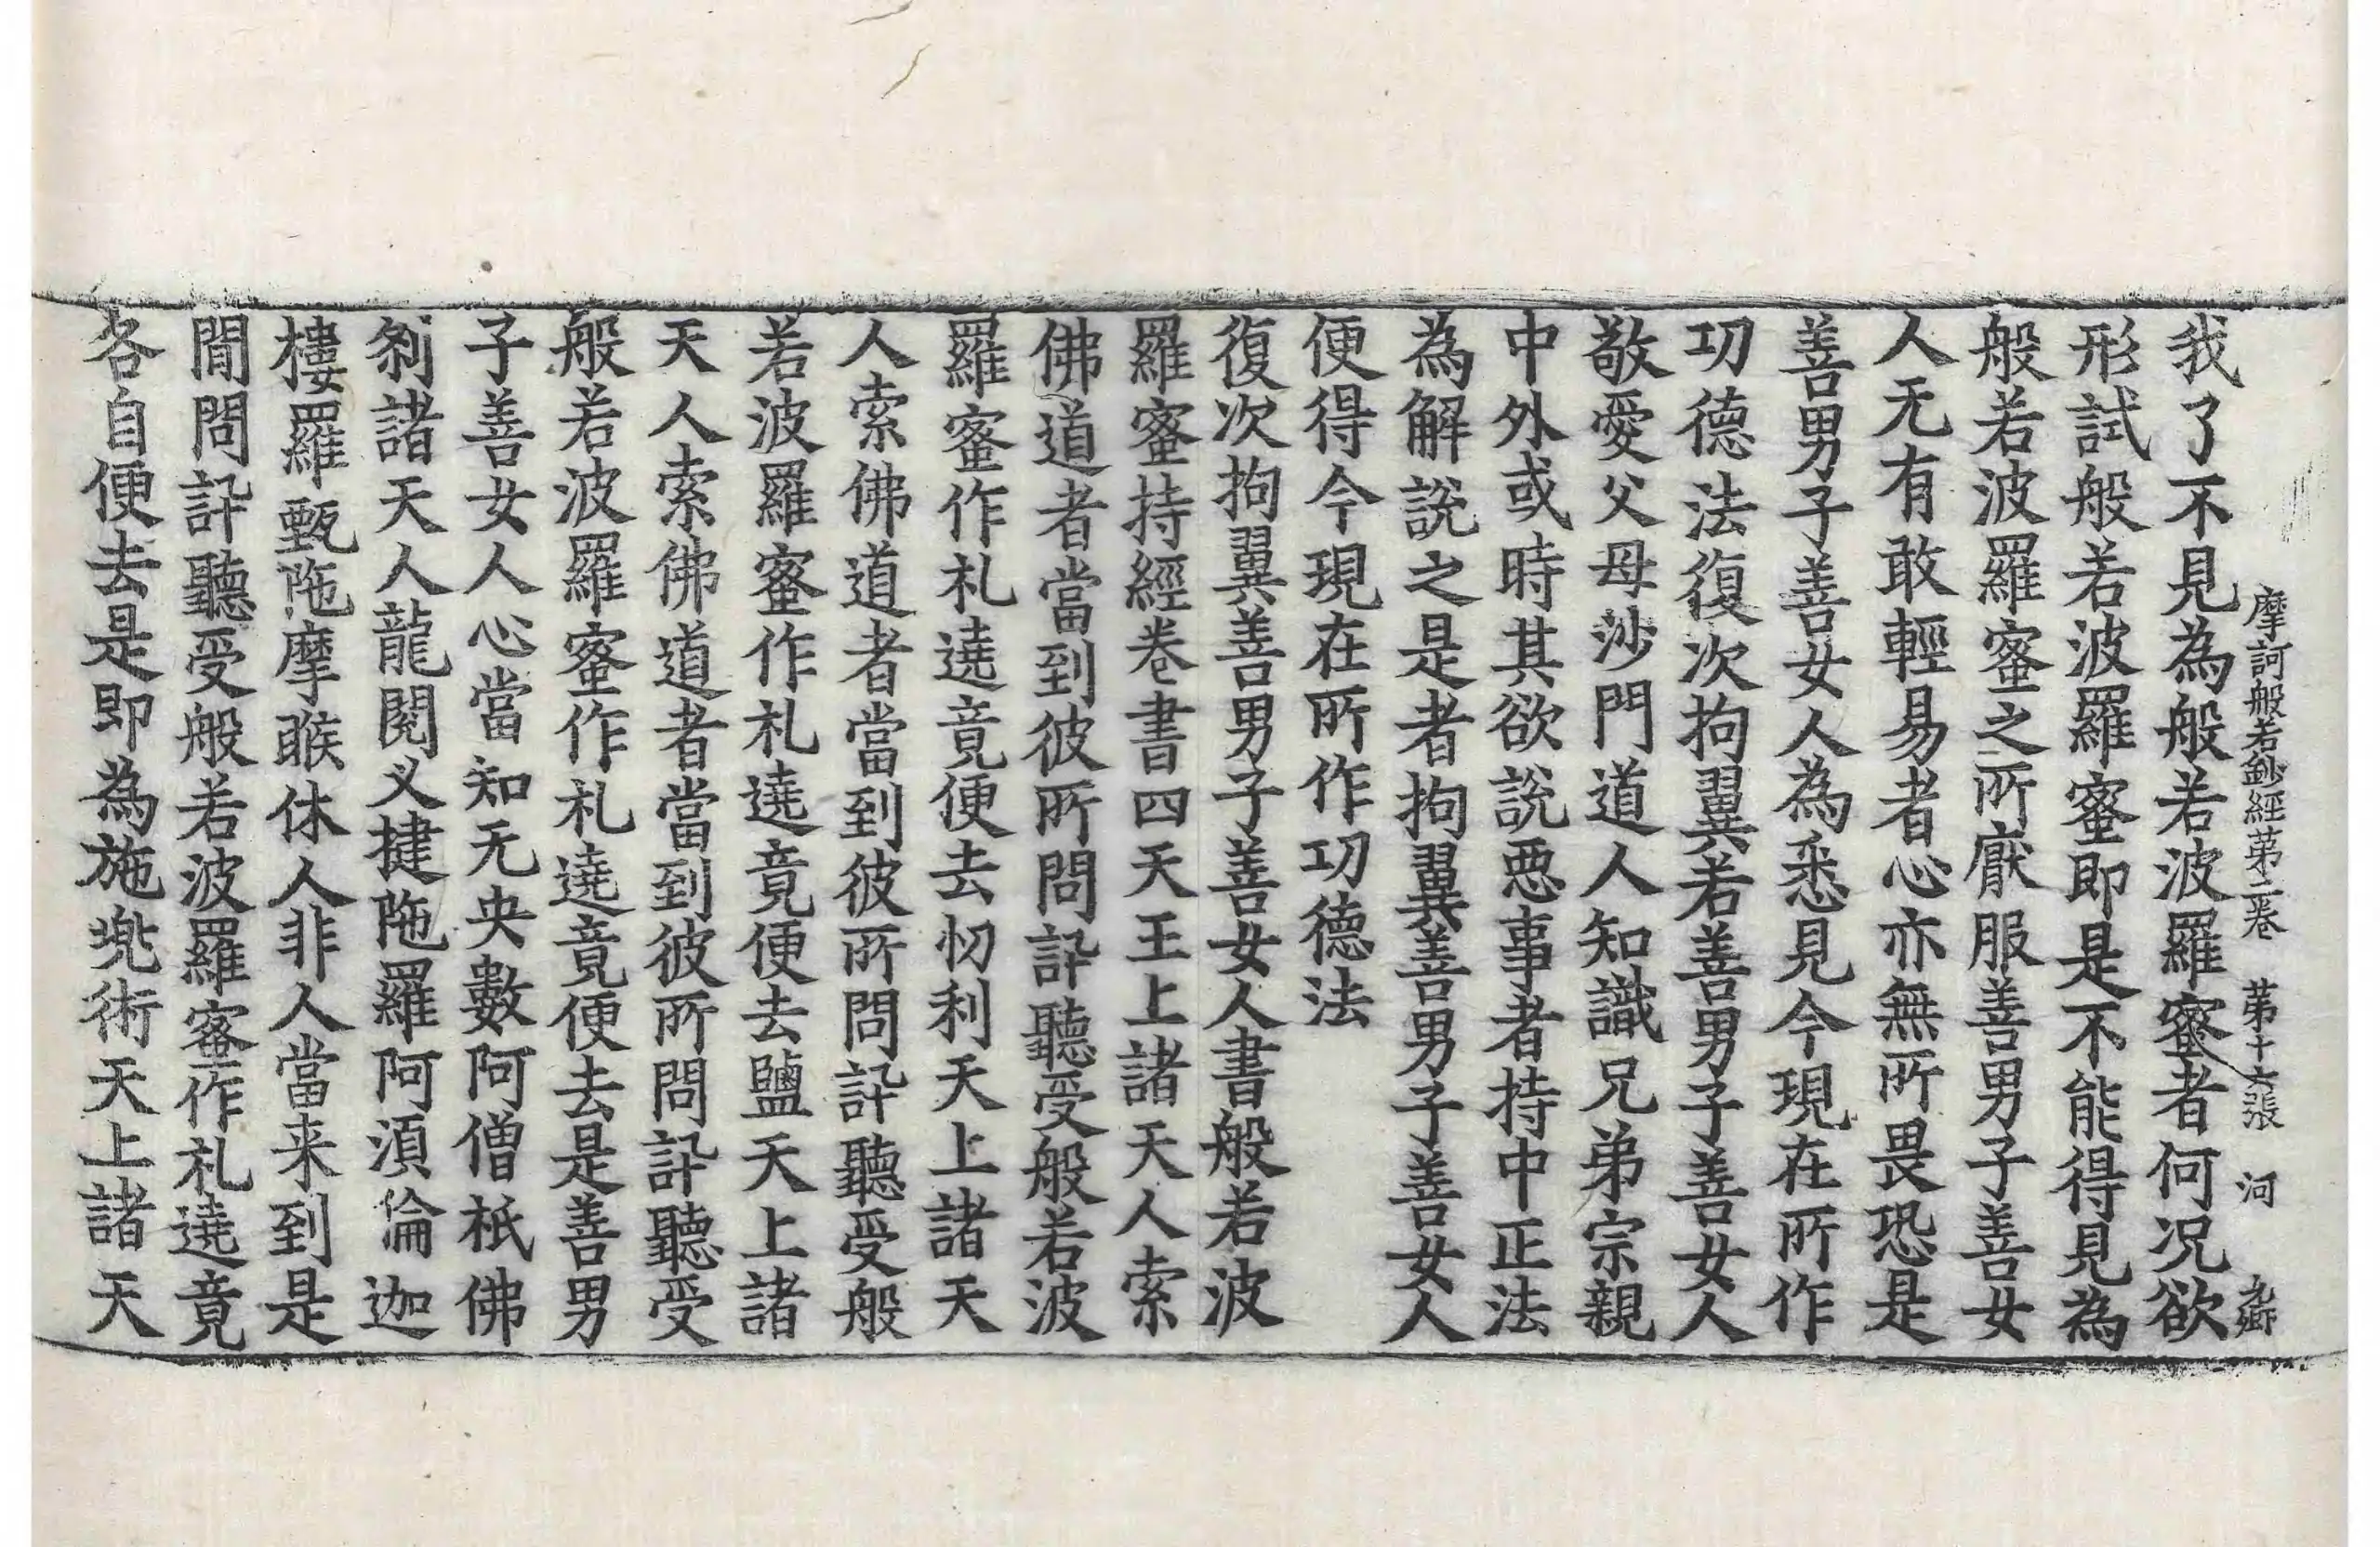 摩訶般若鈔經第二卷 第十六張 河 九娜
我了不見為般若波羅蜜者何況欲
形試般若波羅蜜即是不能得見為
般若波羅蜜之所厭服善男子善女
人无有敢輕易者心亦無所畏恐是
善男子善女人為悉見今現在所作
功德法復次拘翼若善男子善女人
敬愛父母沙門道人知識兄弟宗親
中外或時其欲說惡事者持中正法
為解說之是者拘翼善男子善女人
便得今現在所作功德法
復次拘翼善男子善女人書般若波
羅蜜持經卷書四天王上諸天人索
佛道者當到彼所問訊聽受般若波
羅蜜作礼遶竟便去忉利天上諸天
人索佛道者當到彼所問訊聽受般
若波羅蜜作礼遶竟便去鹽天上諸
天人索佛道者當到彼所問訊聽受
般若波羅蜜作礼遶竟便去是善男
子善女人心當知无央數阿僧祇佛
剎諸天人龍閱叉揵陁羅阿須倫迦
樓羅甄陁摩睺休人非人當来到是
間問訊聽受般若波羅蜜作礼遶竟
各自便去是即為施兠術天上諸天